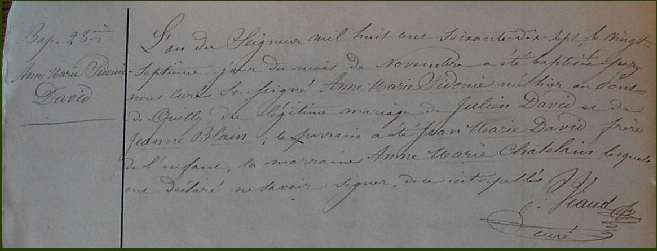 Bap. 28
Anne Marie Sidonie
David
L'an du Seigneur mil huit cent soixante-dix sept, le vingt-
septième jour du mois de Novembre a été baptisée par
nous Curé soussigné Anne Marie Sidonie née hier au
de Quilly du légitime mariage de Julien David et de
Jeanne Blain, le parrain a été Jean Marie David frère
de l'enfant, la marraine Anne Marie Chatelain lesquels
ont déclaré ne savoir signer, de ce interpellés.
Viaud
curé